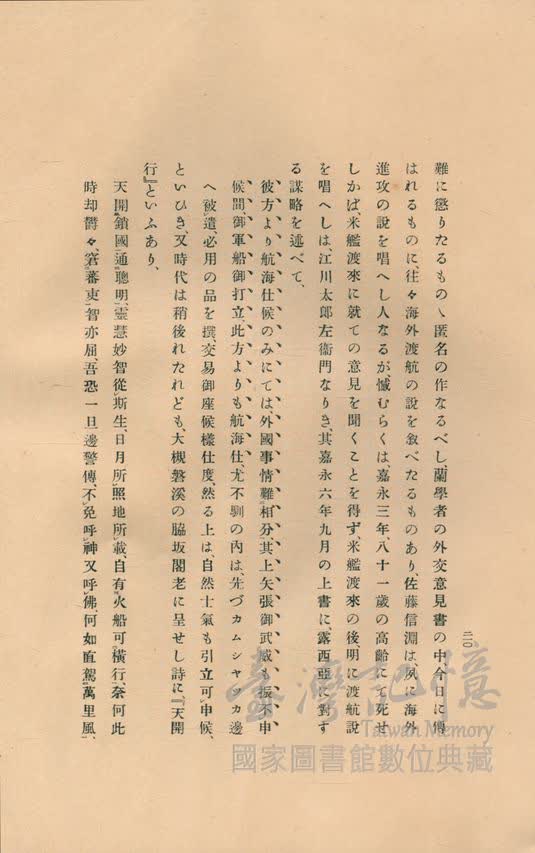 二〇
難に懲りたるものゝ匿名の作なるべし、蘭學者の外交意見書の中、今日に傳
はれるものに往々海外渡航の說を敘べたるものあり佐藤信淵は、夙に海外
進攻の說を唱へし人なるが憾むらくは、嘉永三年、八十一歲の高齡にて死せ
しかば、米艦渡來に就ての意見を聞くことを得ず、米艦渡來の後明に渡航說
を唱へしは、江川太郎左衞門なりき、其嘉永六年九月の上書に、露西亞に對す
る謀略を述べて、
彼方より航海仕候のみにては、外國事情難相分、其上矢張御武威も振不申
候間、御軍船御打立、此方よりも航海仕、尤不馴の內は、先づカムシヤツカ邊
へ被遣、必用の品を撰、交易御座候樣仕度、然る上は、自然士氣も引立可申候、
といひき、又時代は稍後れたれども、大槻磐溪の脇坂閣老に呈せし詩に、『天開
行』といふあり、
天開鎖國通聰明、靈慧妙智從斯生、日月所照地所載、自有火船可橫行、奈何此
時却欝々、窘蕃吏智亦屈、吾恐一旦邊警傳、不免呼神又呼佛、何如直駕萬里風、
臺灣記憶
Taiwan Memory
國家圖書館數位典藏